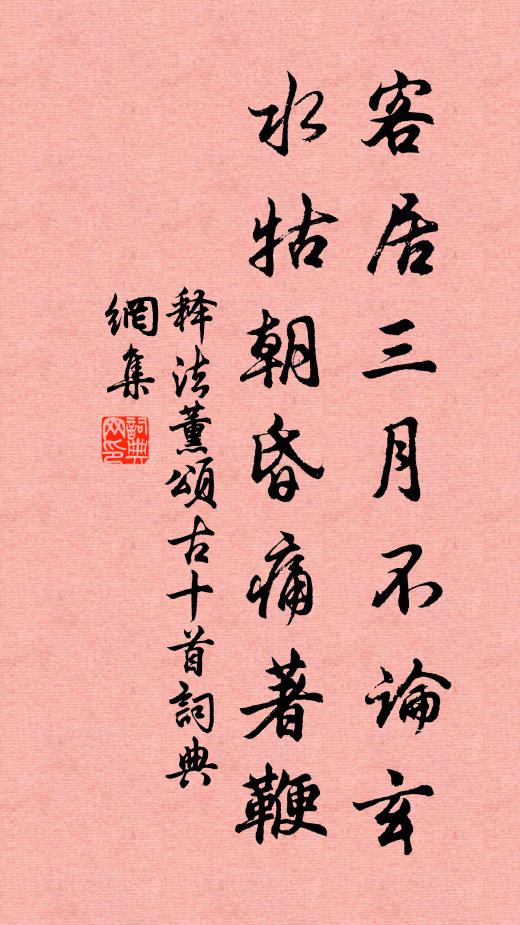 客居三月不論玄
水牯朝昏痛著鞭
释法薰頌古十首詞典
網集
詞典网印